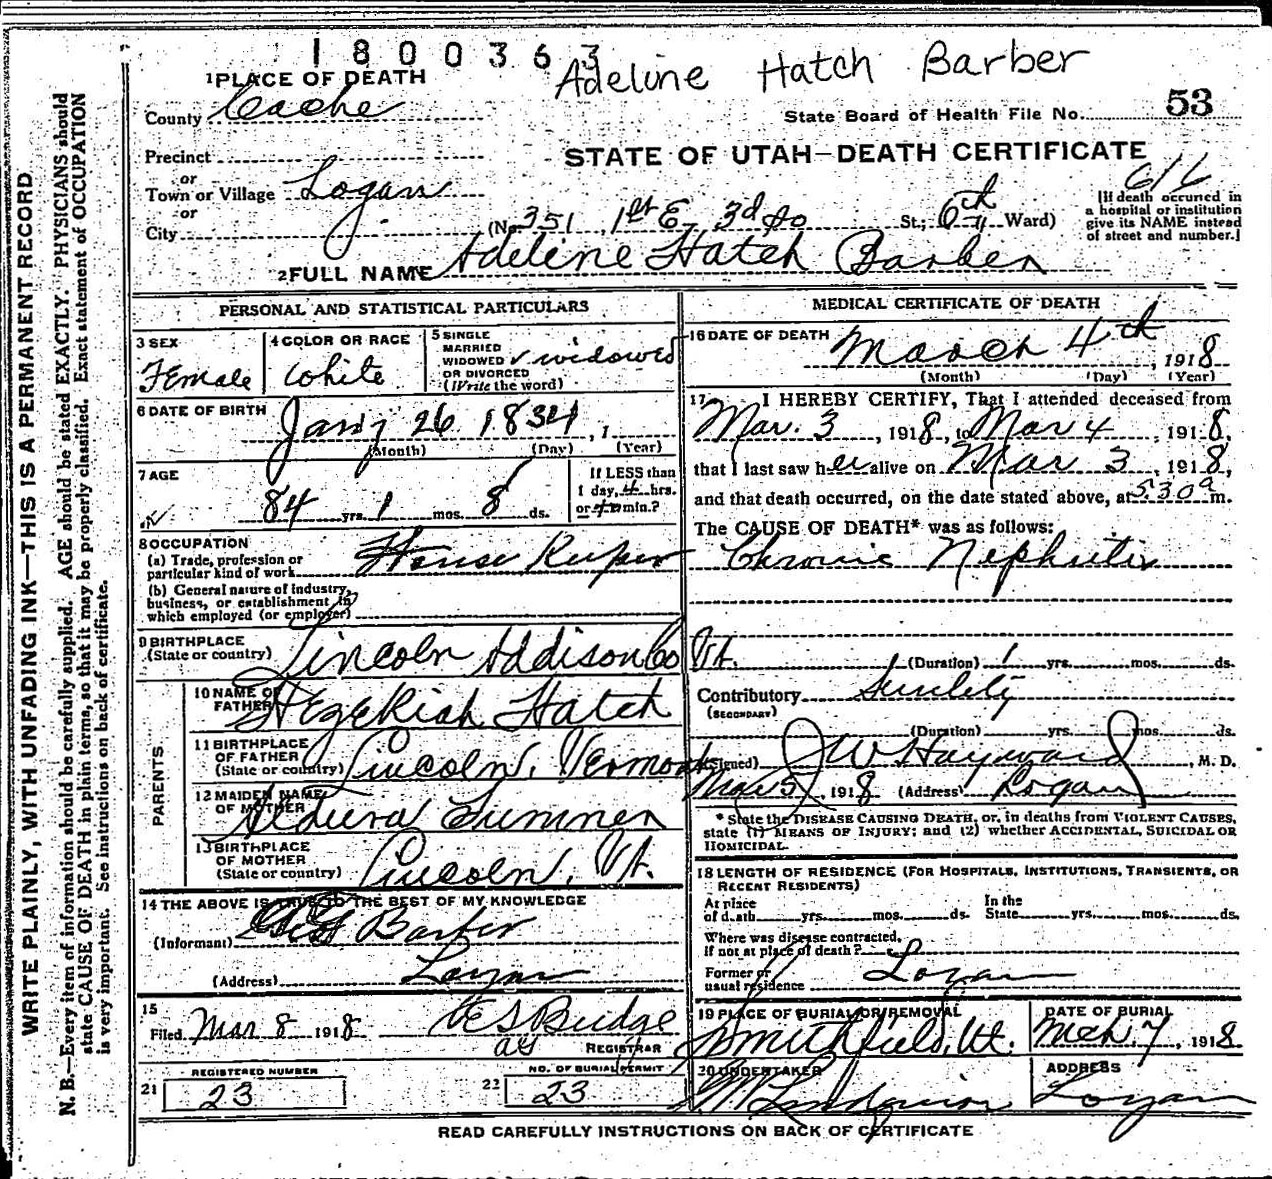 1800363
Adeline Hatch Barber
1 PLACE OF DEATH
County Cache
State Board of Health File No. 53
Precinct
STATE OF UTAH—DEATH CERTIFICATE
or
Town or Village Logan
616
or
City (No. 351 1st E. 3d So St.; 6th Ward)
[If death occurred in a hospital or institution give its NAME instead of street and number.]
2 FULL NAME Adeline Hatch Barber
PERSONAL AND STATISTICAL PARTICULARS
3 SEX Female
4 COLOR OR RACE White
5 SINGLE MARRIED WIDOWED OR DIVORCED (Write the word) widowed
6 DATE OF BIRTH Jany 26 1834, 1
(Month) (Day) (Year)
7 AGE 84 yrs. 1 mos. 8 ds.
If LESS than 1 day, hrs. or min.?
8 OCCUPATION
(a) Trade, profession or particular kind of work House Keeper
(b) General nature of industry, business, or establishment in which employed (or employer)
9 BIRTHPLACE (State or country) Lincoln Addison Co Vt.
PARENTS
10 NAME OF FATHER Hezekiah Hatch
11 BIRTHPLACE OF FATHER (State or country) Lincoln, Vermont
12 MAIDEN NAME OF MOTHER Aldura Sumner
13 BIRTHPLACE OF MOTHER (State or country) Lincoln, Vt.
14 THE ABOVE IS TRUE TO THE BEST OF MY KNOWLEDGE
(Informant) Barber
(Address) Logan
15
Filed Mar 8 1918 ES Budge
REGISTRAR
REGISTERED NUMBER
21 23
NO. OF BURIAL PERMIT
22 23
MEDICAL CERTIFICATE OF DEATH
16 DATE OF DEATH March 4th, 1918
(Month) (Day) (Year)
17 I HEREBY CERTIFY, That I attended deceased from
Mar. 3, 1918, to Mar 4, 1918,
that I last saw her alive on Mar 3, 1918,
and that death occurred, on the date stated above, at 530 a m.
The CAUSE OF DEATH* was as follows:
Chronic Nephritis
(Duration) 1 yrs. mos. ds.
Contributory Senility
(SECONDARY)
(Duration) yrs. mos. ds.
(Signed) J W Hayward, M. D.
Mar 5, 1918 (Address) Logan
* State the DISEASE CAUSING DEATH, or, in deaths from VIOLENT CAUSES,
state (1) MEANS OF INJURY; and (2) whether ACCIDENTAL, SUICIDAL OR
HOMICIDAL.
18 LENGTH OF RESIDENCE (FOR HOSPITALS, INSTITUTIONS, TRANSIENTS, OR
RECENT RESIDENTS)
At place of death yrs. mos. ds. In the State yrs. mos. ds.
Where was disease contracted,
if not at place of death?
Former or usual residence Logan
19 PLACE OF BURIAL OR REMOVAL Smithfield, Ut.
DATE OF BURIAL Mch. 7, 1918
20 UNDERTAKER
ADDRESS Logan
READ CAREFULLY INSTRUCTIONS ON BACK OF CERTIFICATE
WRITE PLAINLY, WITH UNFADING INK—THIS IS A PERMANENT RECORD
N. B.—Every item of information should be carefully supplied. AGE should be stated EXACTLY. PHYSICIANS should
state CAUSE OF DEATH in plain terms, so that it may be properly classified. Exact statement of OCCUPATION
is very important. See instructions on back of certificate.